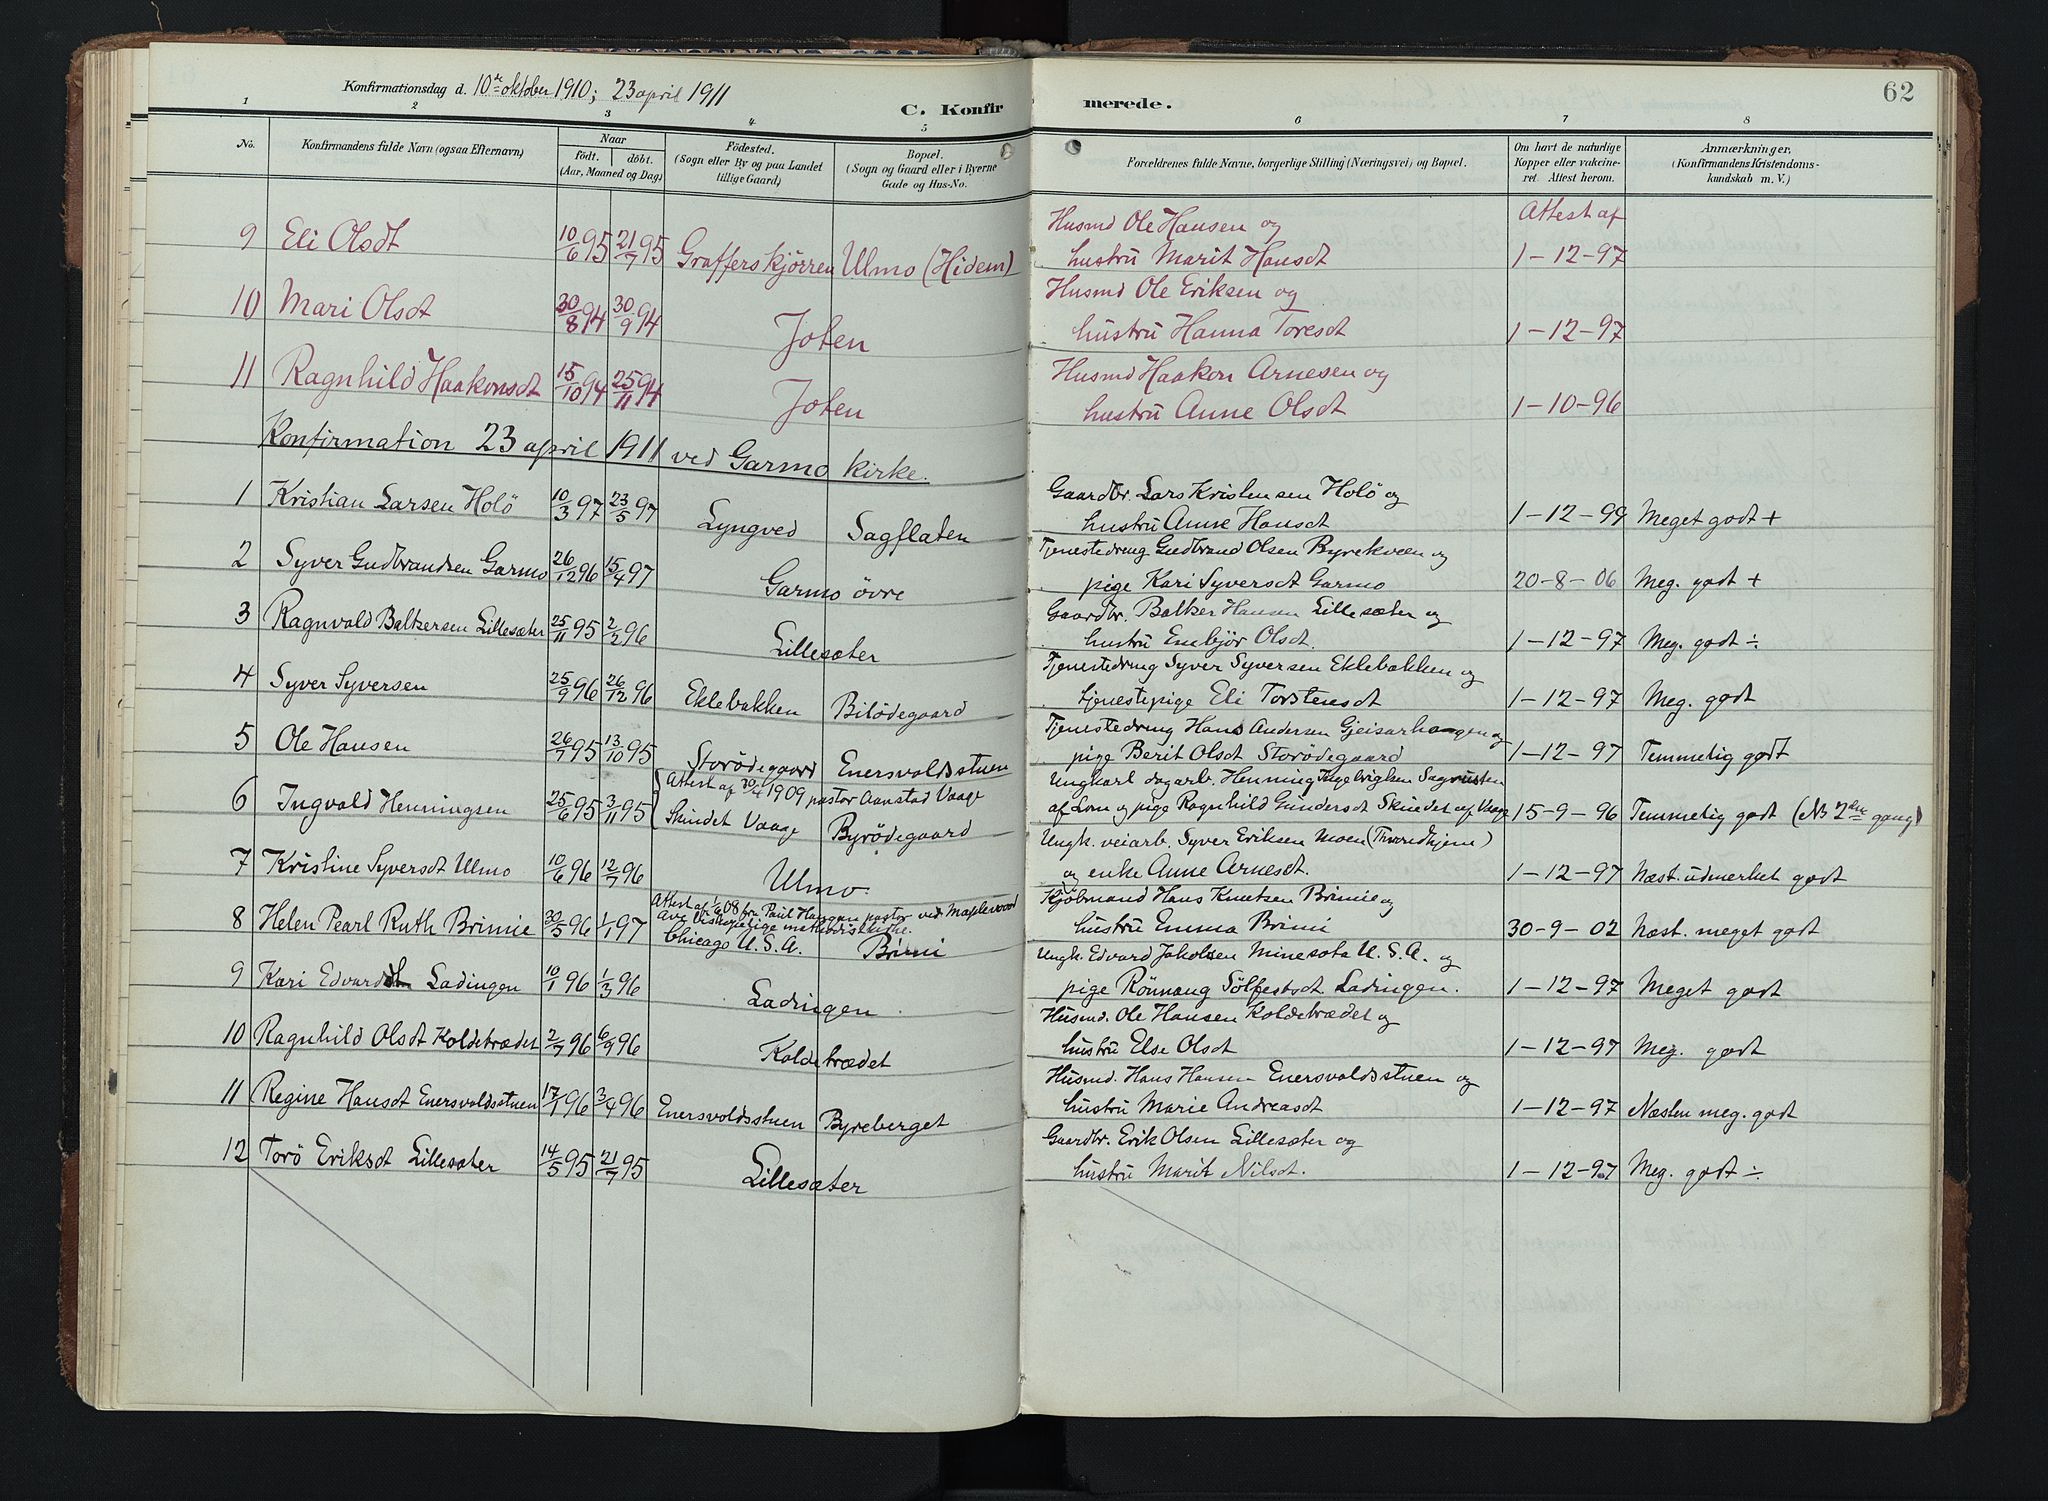 Konfirmationsdag d. 10de oktober 1910; 23 april 1911
62
C. Konfirmerede.
1 2 3 4 5 6 7 8
No.
Konfirmandens fulde Navn (ogsaa Efternavn).
Naar
födt. döbt.
(Aar, Maaned og Dag).
Födested.
(Sogn eller By og paa Landet
tillige Gaard)
Bopæl.
(Sogn og Gaard eller i Byerne
Gade og Hus-No.
Forældrenes fulde Navne, borgerlige Stilling (Næringsvei) og Bopæl.
Om havt de naturlige
Kopper eller vakcine-
ret. Attest herom.
Anmærkninger,
(Konfirmandens Kristendoms-
kundskab m. V.)
9 Eli Olsdt 10/6 95 21/7 95 Graffers kjörren Ulmo (Hidem) Husmd Ole Hansen og Attest af
hustru Marit Hansdt 1-12-97
10 Mari Olsdt 30/8 94 30/9 94 Joten Husmd Ole Eriksen og
hustru Hanna Toresdt 1-12-97
11 Ragnhild Haakonsdt 15/10 94 25/11 94 Joten Husmd Haakon Arnesen og
hustru Anne Olsdt 1-10-96
Konfirmation 23 april 1911 ved Garmo kirke.
1 Kristian Larsen Holö 10/3 97 23/5 97 Lyngved Sagflaten Gaardbr. Lars Kristensen Holö og
hustru Anne Hansdt 1-12-99 Meget godt +
2 Syver Gudbrandsen Garmo 26/12 96 15/4 97 Garmo övre Tjenestedreng Gudbrand Olsen Byrekveen og
pige Kari Syversdt Garmo 20-8-06 Meg. godt +
3 Ragnvald Baltzersen Lillesæter 25/11 95 2/2 96 Lillesæter Gaardbr. Baltzer Hansen Lillesæter og
hustru Embjör Olsdt. 1-12-97 Meg. godt ÷
4 Syver Syversen 25/9 96 26/12 96 Eklebakken Bilödegaard Tjenestedreng Syver Syversen Eklebakken og
tjenestepige Eli Torstensdt 1-12-97 Meg. godt
5 Ole Hansen 26/7 95 13/10 95 Storödegaard Enersvoldsstuen Tjenestedreng Hans Andersen Gjeisarhaugen og
pige Berit Olsdt Storödegaard 1-12-97 Temmelig godt
6 Ingvald Henningsen 25/6 95 3/11 95 Attest af 30/4 1909 pastor Aanstad Vaage
Skindet Vaage Byrödegaard Ungkarl dagarb. Henning Ingebrigtsen Sagrusten
af Lom og pige Ragnhild Gundersdt Skindet af Vaage 15-9-96 Temmelig godt (No 2den gang)
7 Kristine Syversdt Ulmo 10/6 96 12/7 96 Ulmo Ungk. veiarb. Syver Eriksen Moen (Trondhjem)
og enke Anne Arnesdt. 1-12-97 Næst. udmerket godt
8 Helen Pearl Ruth Brimie 30/5 96 1/1 97 Attest af 1/6 08 fra Paul Haugan pastor ved Maplewood
Ave biskopelige methodistkirke.
Chicago U.S.A. Brimi Kjöbmand Hans Knutsen Brimie og
hustru Emma Brimi 30-9-02 Næst. meget godt
9 Kari Edvardsdt Ladingen 10/1 96 1/3 96 Ladingen Ungk. Edvard Jakobsen Minesota U.S.A. og
pige Rönnaug Sölfestsdt Ladingen. 1-12-97 Meget godt
10 Ragnhild Olsdt Koldetrædet 2/7 96 6/9 96 Koldetrædet Husmd. Ole Hansen Koldetrædet og
hustru Else Olsdt 1-12-97 Meg. godt
11 Regine Hansdt Enersvoldsstuen 17/1 96 3/4 96 Enersvoldsstuen Byreberget Husmd. Hans Hansen Enersvoldsstuen og
hustru Marie Andreasdt 1-12-97 Næsten meg. godt
12 Torö Eriksdt Lillesæter 14/5 95 21/7 95 Lillesæter Gaardbr. Erik Olsen Lillesæter og
hustru Marit Nilsdt. 1-12-97 Meg. godt ÷